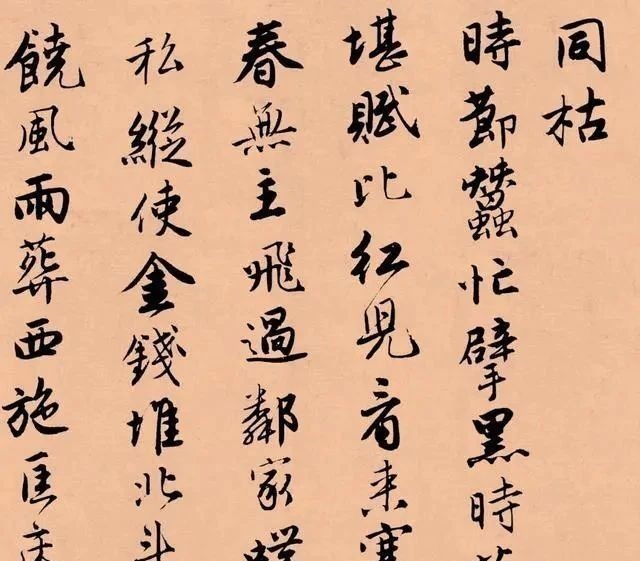 同枯
時節蠶忙擘黑時
堪賦比紅兒看来寒
春無主飛過鄰家蝶
私縱使金錢堆北斗
饒風雨葬西施匡床